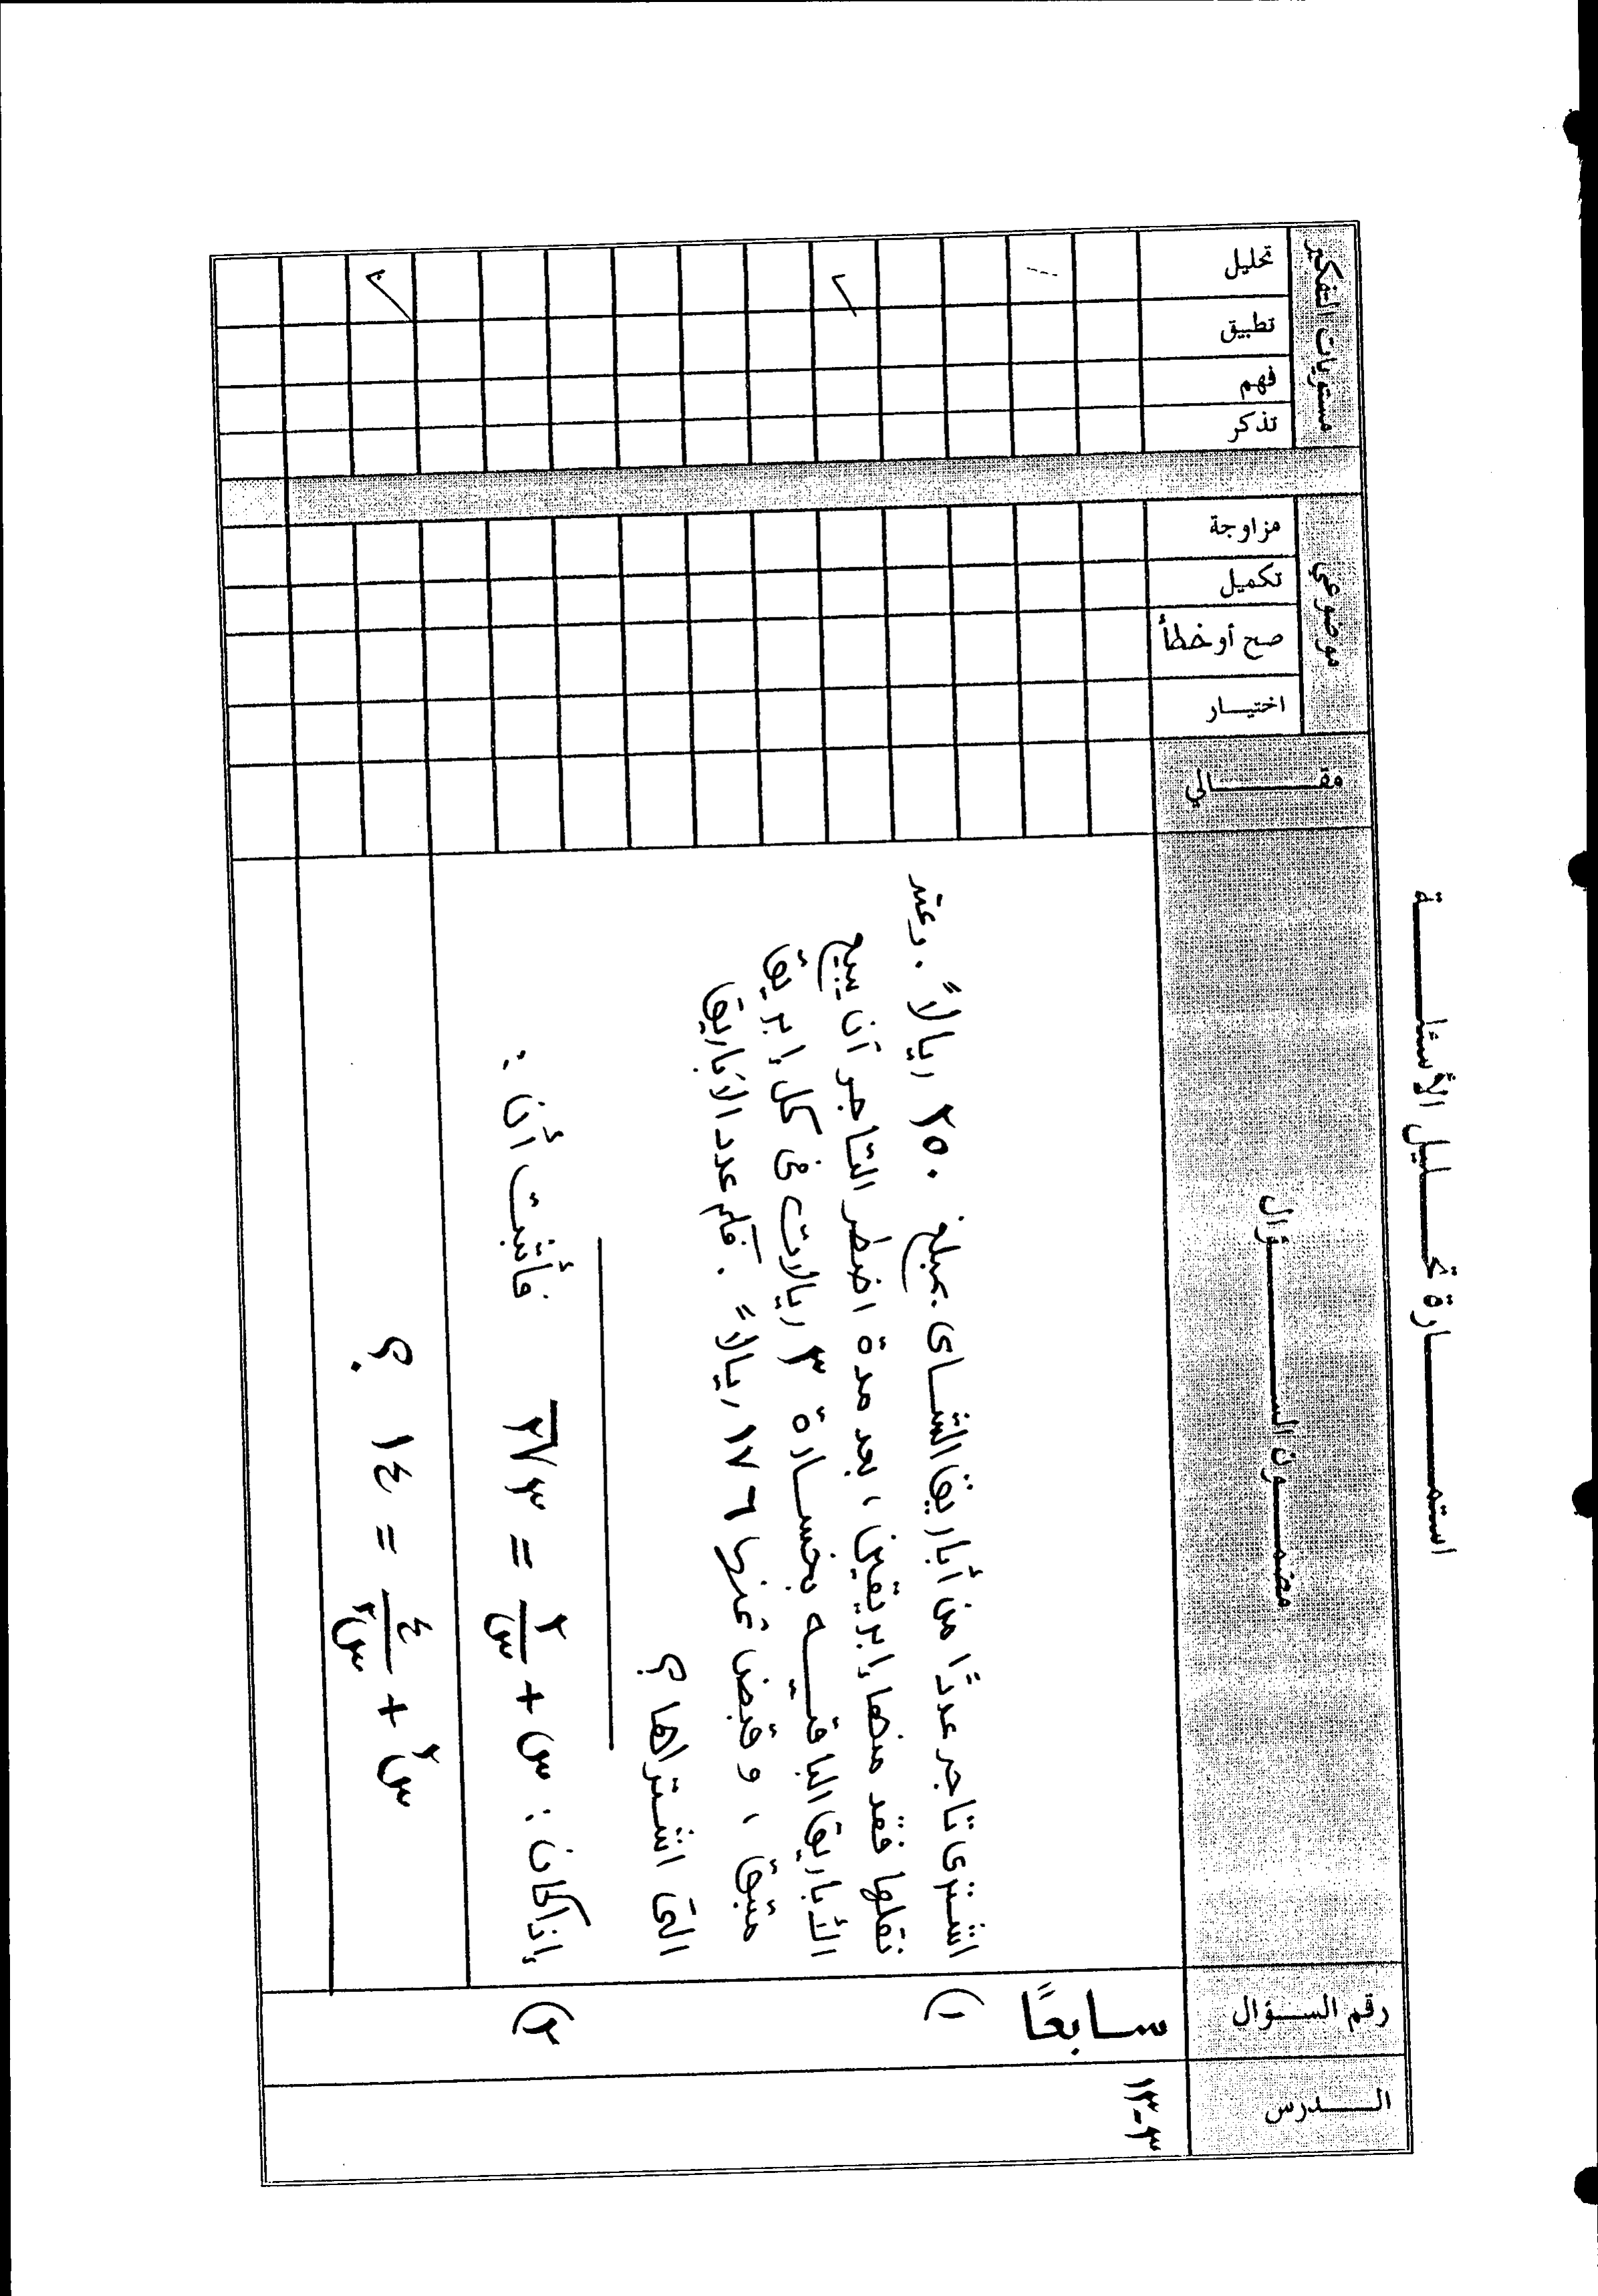 استمارة تحليل الأسئلة
الدرس
رقم السؤال
مضمون السؤال
مقالي
موضوعي
مستويات التفكير
اختيار
صح أو خطأ
تكميل
مزاوجة
تذكر
فهم
تطبيق
تحليل
٣-١٣
سابعًا
(١)
اشترى تاجر عددًا من أباريق الشاى بمبلغ ٢٥٠ ريالاً. وعند
نقلها فقد منها إبريقين ، بعد مدة اضطر التاجر أن يبيع
الأباريق الباقيه بخسارة ٣ ريالات فى كل إبريق
متبق ، و قبض ثمنها ١٧٦ ريالاً . فكم عدد الأباريق
التى اشتراها ؟
(٢)
إذا كان : س + ٢/س = ٣√٢ فأثبت أن :
س² + ٤/س² = ١٤ ؟